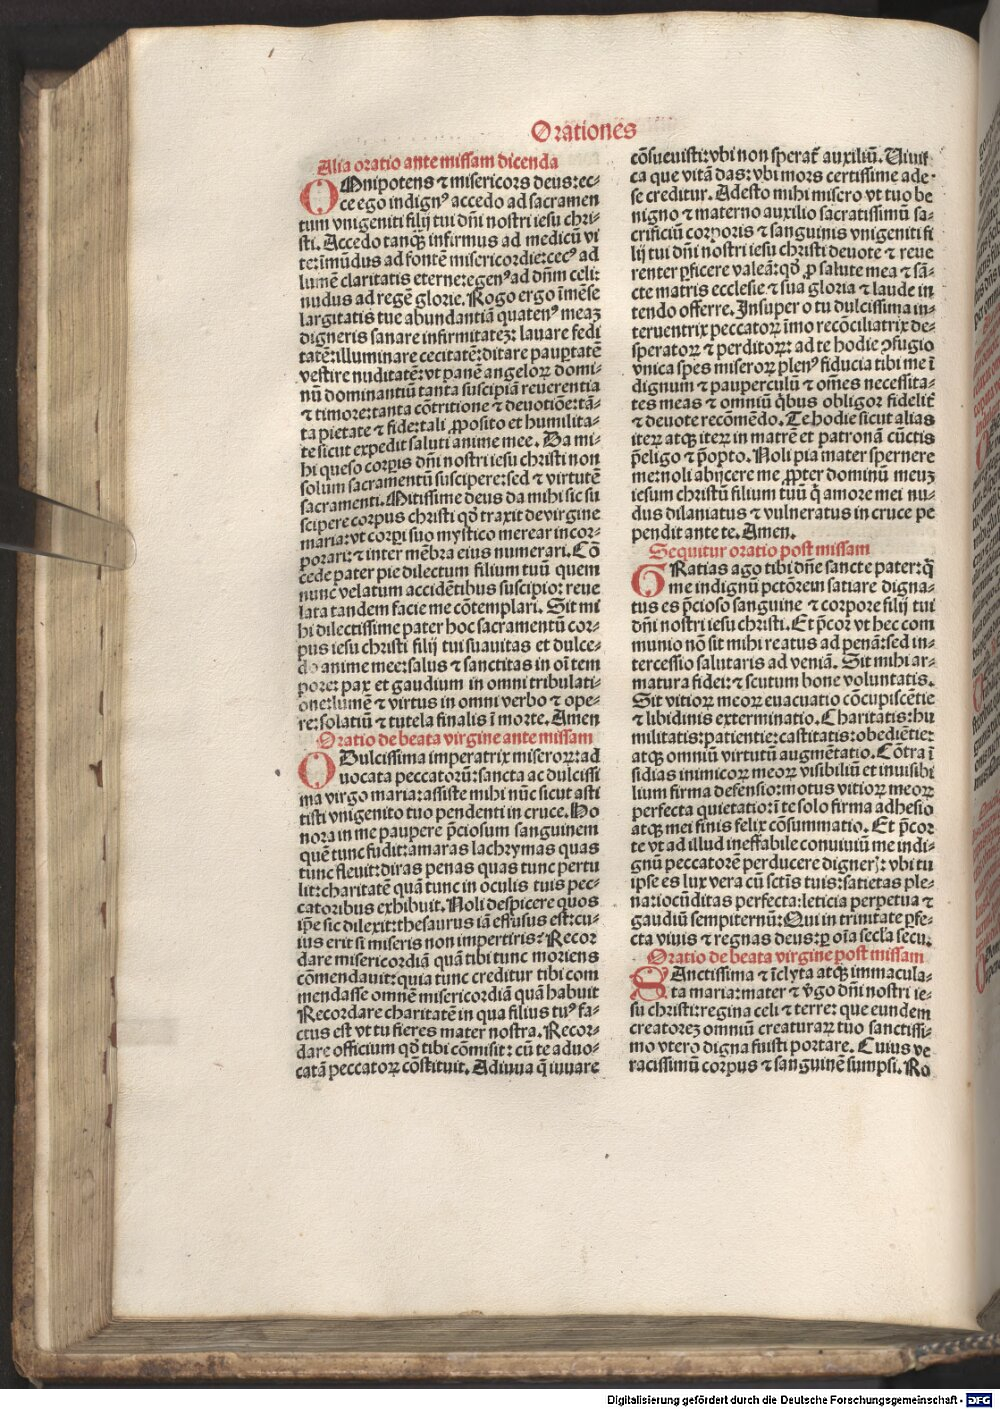 Orationes
Alia oratio ante missam dicenda
OMnipotens ⁊ misericors deus:ec⸗
ce ego indignꝰ accedo ad sacramen
tum vnigeniti filij tui dñi nostri iesu chri⸗
sti. Accedo tanq̃ȝ infirmus ad medicū vi
te:īmūdus ad fontē misericordie:cecꝰ ad
lumē claritatis eterne:egenꝰ ad dñm celi:
nudus ad regē glorie. Rogo ergo īmēse
largitatis tue abundantiā quatenꝰ meaȝ
digneris sanare infirmitateȝ: lauare fedi
tatē:illuminare cecitatē:ditare paup̱tatē
vestire nuditatē:vt panē angeloꝝ domi⸗
nū dominantiū tanta suscipiā reuerentia
⁊ timore:tanta cōtritione ⁊ deuotiōe:tā⸗
ta pietate ⁊ fide:tali ꝓposito et humilita⸗
te sicut expedit saluti anime mee. Da mi⸗
hi queso corꝑis dñi nostri iesu christi non
solum sacramentū suscipere:sed ⁊ virtutē
sacramenti. Mitissime deus da mihi sic su
scipere corpus christi qđ traxit de virgine
maria:vt corꝑi suo mystico merear incor⸗
porari:⁊ inter mēbra eius numerari. Cō
cede pater pie dilectum filium tuū quem
nunc velatum accidētibus suscipio: reue
lata tandem facie me cōtemplari. Sit mi
hi dilectissime pater hoc sacramentū cor⸗
pus iesu christi filij tui suauitas et dulce⸗
do anime mee:salus ⁊ sanctitas in oī tem
pore: pax et gaudium in omni tribulati⸗
one:lumē ⁊ virtus in omni verbo ⁊ ope⸗
re:solatiū ⁊ tutela finalis ī morte. Amen
Oratio de beata virgine ante missam
ODulcissima imperatrix miseroꝝ:ad
uocata peccatorū:sancta ac dulcissi
ma virgo maria:assiste mihi nūc sicut asti
tisti vnigenito tuo pendenti in cruce. Ho
nora in me paupere p̄ciosum sanguinem
quē tunc fudit:amaras lachrymas quas
tunc fleuit:diras penas quas tunc pertu
lit:charitatē quā tunc in oculis tuis pec⸗
catoribus exhibuit. Noli despicere quos
ip̄e sic dilexit:thesaurus iā effusus est:cu⸗
ius erit si miseris non impertiris? Recor
dare misericordiā quā tibi tunc moriens
cōmendauit:quia tunc creditur tibi com
mendasse omnē misericordiā quā habuit
Recordare charitatē in qua filius tuꝰ fa⸗
ctus est vt tu fieres mater nostra. Recor⸗
dare officium qđ tibi cōmisit: cū te aduo⸗
catā peccatoꝝ cōstituit. Adiuua q̄ iuuare
cōsueuisti:vbi non speraƭ auxiliū. Uiuifi
ca que vitā das:vbi mors certissime ade⸗
se creditur. Adesto mihi misero vt tuo be
nigno ⁊ materno auxilio sacratissimū sa⸗
crificiū corporis ⁊ sanguinis vnigeniti fi
lij tui dñi nostri iesu christi deuote ⁊ reue
renter ꝑficere valeā:qđ ꝓ salute mea ⁊ sā⸗
cte matris ecclesie ⁊ sua gloria ⁊ laude in
tendo offerre. Insuper o tu dulcissima in⸗
teruentrix peccatoꝝ īmo recōciliatrix de⸗
speratoꝝ ⁊ perditoꝝ: ad te hodie ꝯfugio
vnica spes miseroꝝ plenꝰ fiducia tibi me ī
dignum ⁊ pauperculū ⁊ om̄es necessita⸗
tes meas ⁊ omniū q̄bus obligor fideliƭ
⁊ deuote recōmēdo. Te hodie sicut alias
iteꝝ atqȝ iteꝝ in matrē et patronā cūctis
p̄eligo ⁊ p̄opto. Noli pia mater spernere
me:noli abijcere me ꝓpter dominū meuȝ
iesum christū filium tuū q̄ amore mei nu⸗
dus dilaniatus ⁊ vulneratus in cruce pe
pendit ante te. Amen.
Sequitur oratio post missam
GRatias ago tibi dñe sancte pater:q̄
me indignū pctōrem satiare digna⸗
tus es p̄cioso sanguine ⁊ corpore filij tui
dñi nostri iesu christi. Et p̄cor vt hec com
munio nō sit mihi reatus ad penā:sed in⸗
tercessio salutaris ad veniā. Sit mihi ar⸗
matura fidei:⁊ scutum bone voluntatis.
Sit vitioꝝ meoꝝ euacuatio cōcupiscētie
⁊ libidinis exterminatio. Charitatis:hu
militatis:patientie:castitatis:obediētie:
atqȝ omniū virtutū augmētatio. Cōtra ī
sidias inimicoꝝ meoꝝ visibiliū et inuisibi
lium firma defensio:motus vitioꝝ meoꝝ
perfecta quietatio:ī te solo firma adhesio
atqȝ mei finis felix cōsummatio. Et p̄cor
te vt ad illud ineffabile conuiuiū me indi⸗
gnū peccatorē perducere digneris: vbi tu
ipse es lux vera cū sctīs tuis:satietas ple⸗
na:iocūditas perfecta:leticia perpetua ⁊
gaudiū sempiternū: Qui in trinitate ꝑfe⸗
cta viuis ⁊ regnas deus:ꝑ oīa secła secu.
Oratio de beata virgine post missam
SAnctissima ⁊ īclyta atqȝ immacula⸗
ta maria:mater ⁊ v̄go dñi nostri ie⸗
su christi:regina celi ⁊ terre: que eundem
creatoreȝ omniū creaturaꝝ tuo sanctissi⸗
mo vtero digna fuisti portare. Cuius ve
racissimū corpus ⁊ sanguinē sumpsi. Ro
Digitalisierung gefördert durch die Deutsche Forschungsgemeinschaft - DFG